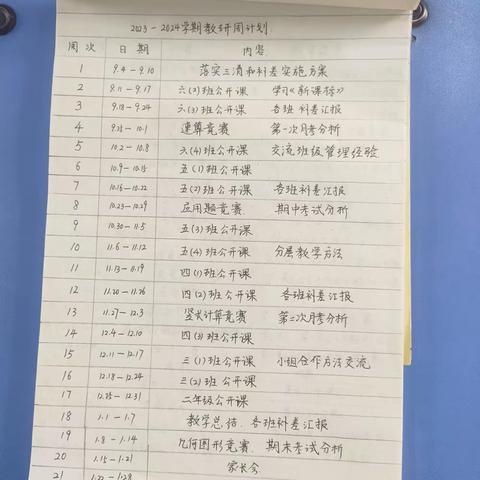 2023-2024学期教研周计划
周次 日期 内容
1 9.4-9.10 落实三清和补差实施方案
2 9.11-9.17 六(2)班公开课 学习《新课标》
3 9.18-9.24 六(3)班公开课 各班补差汇报
4 9.25-10.1 速算竞赛 第一次月考分析
5 10.2-10.8 六(4)班公开课 交流班级管理经验
6 10.9-10.15 五(1)班公开课
7 10.16-10.22 五(2)班公开课 各班补差汇报
8 10.23-10.29 应用题竞赛 期中考试分析
9 10.30-11.5 五(3)班公开课
10 11.6-11.12 五(4)班公开课 分层教学方法
11 11.13-11.19 四(1)班公开课
12 11.20-11.26 四(2)班公开课 各班补差汇报
13 11.27-12.3 竖式计算竞赛 第二次月考分析
14 12.4-12.10 四(3)班公开课
15 12.11-12.17 三(1)班公开课 小组合作方法交流
16 12.18-12.24 三(2)班公开课
17 12.25-12.31 二年级公开课
18 1.1-1.7 教学总结、各班补差汇报
19 1.8-1.14 几何图形竞赛、期末考试分析
20 1.15-1.21 家长会
21 1.22-1.28